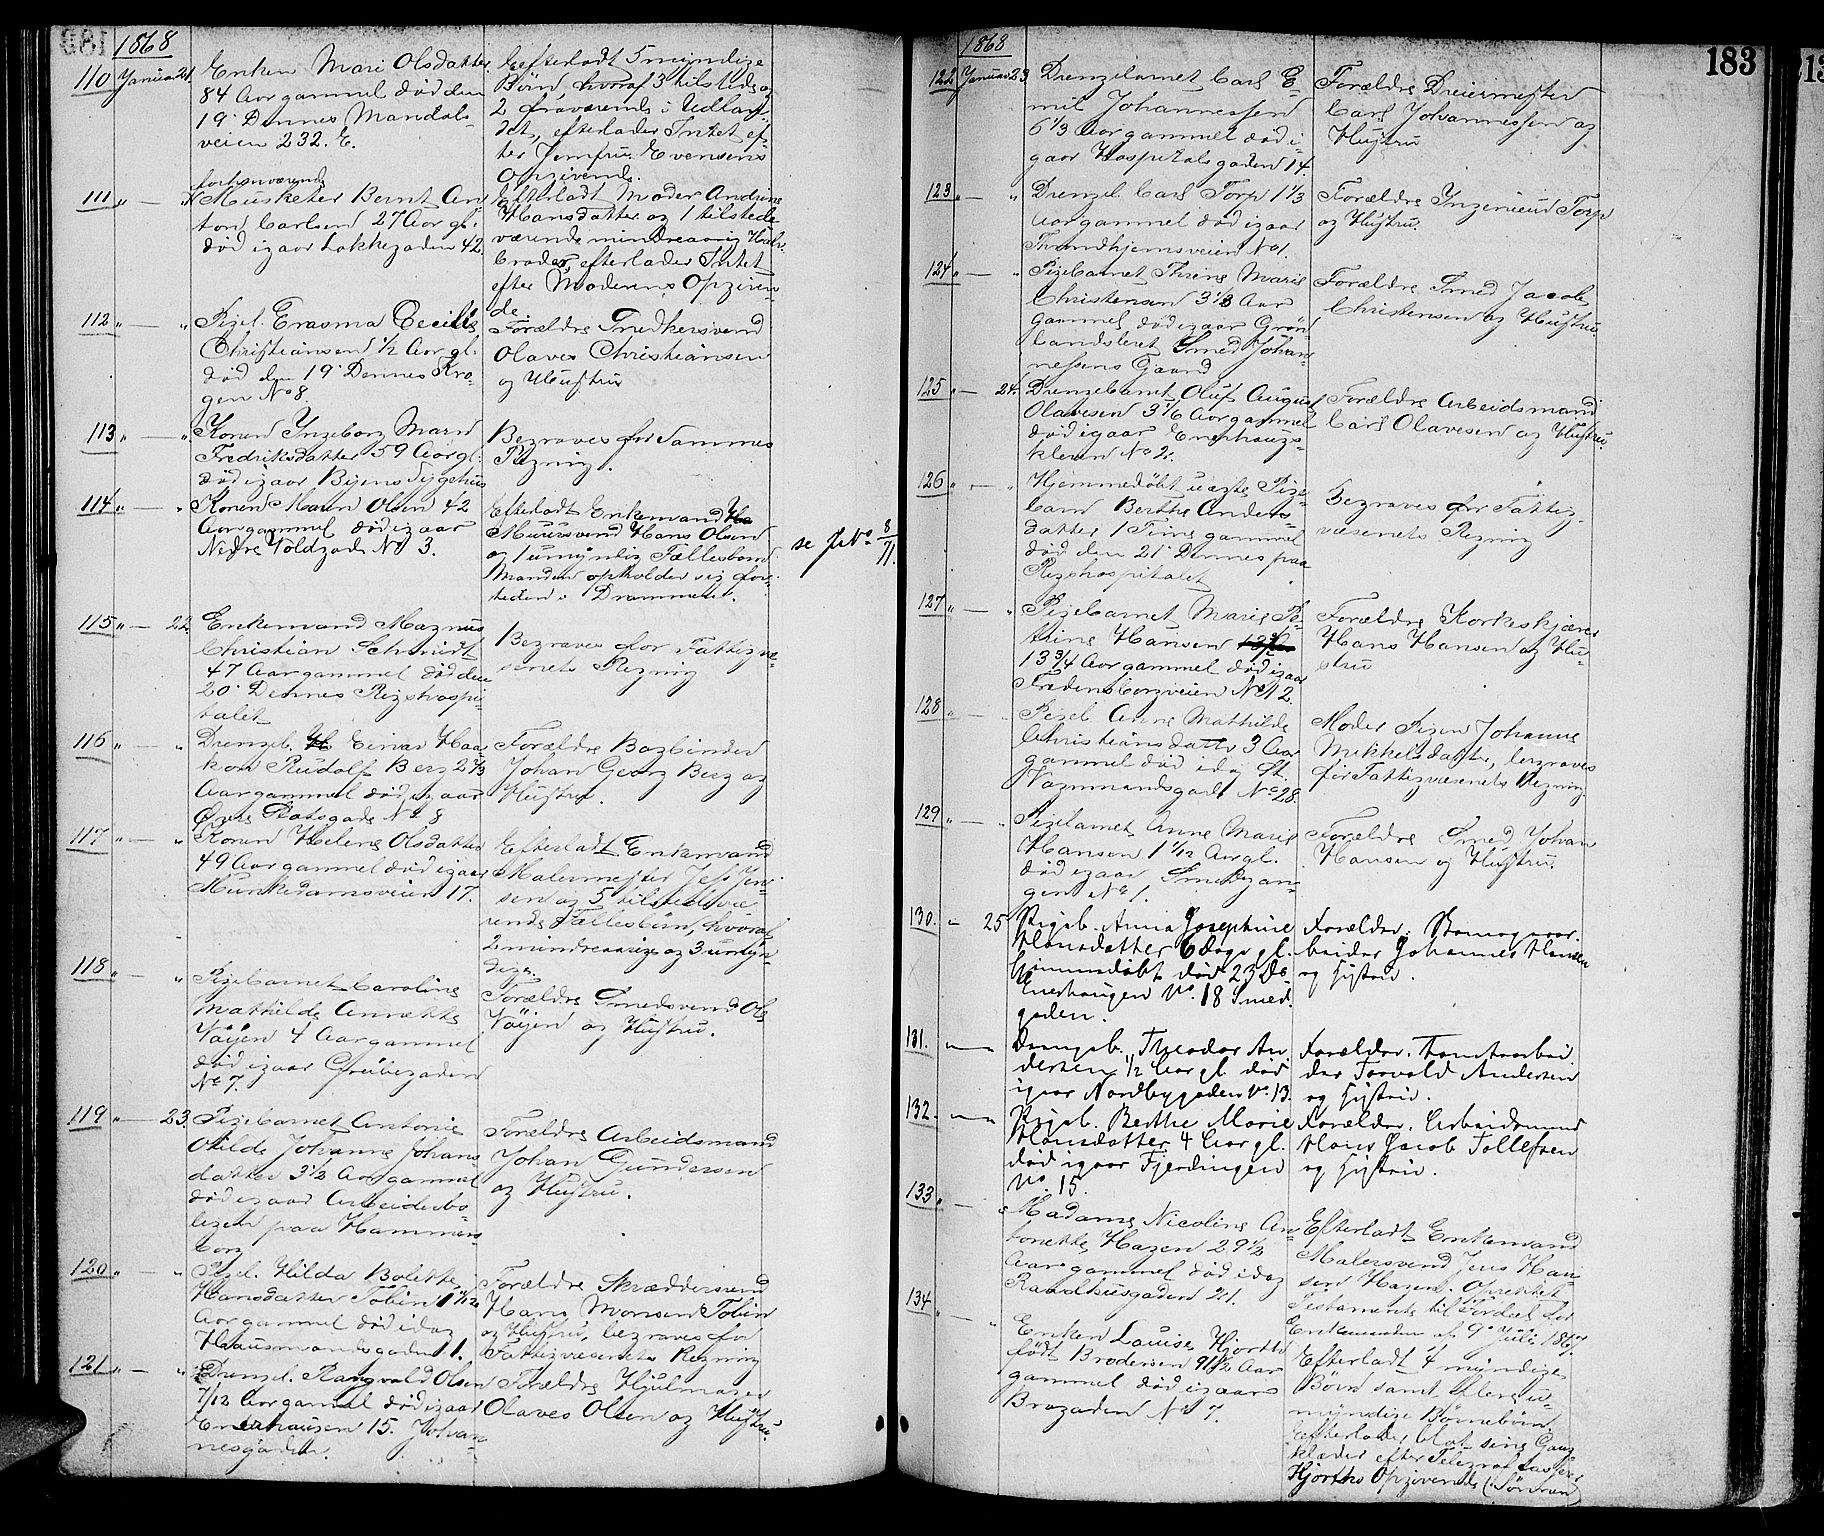 1868
110 Januar 21. Enken Mari Olsdatter
84 Aar gammel død den
19' Dennes Mandals-
veien 232. E.
Efterladt 5 myndige
Børn, hvoraf 3 tilstede og
2 fraværende i Udlan-
det, efterlader Intet ef-
ter Jomfru Evensens
Opgivende.
111 " — " forhenværende
Musketer Bernt An-
ton Carlsen 27 Aar gl.
død igaar Lakkegaden 42.
Efterladt Moder Andrine
Hansdatter og 1 tilstede
værende mindreaarig Halv-
broder, efterlader Intet
efter Moderens Opgiven-
de.
112 " — " Pigeb. Erasma Cecilie
Christiansen 1/2 Aar gl.
død den 19' Dennes Kro-
gen No 8.
Forældre Snedkersvend
Olaves Christiansen
og Hustru
113 " — " Konen Ingeborg Marie
Fredriksdatter 59 Aar gl.
død igaar Byens Sygehus
Begraves for Sammes
Regning.
114 " — " Konen Maren Olsen 42
Aar gammel død igaar
Nedre Voldgade No 3.
Efterladt Enkemand
Muursvend Hans Olsen
og 1 umyndig Fællesbarn
Manden opholder sig for-
tiden i Drammen.
se No 8/71.
115 " — 22. Enkemand Magnus
Christian Schmidt
47 Aar gammel død den
20' Dennes Rigshospi-
talet
Begraves for Fattigvæ-
senets Regning
116 " — " Drengeb. Einar Haa-
kon Rudolf Berg 2 2/3
Aar gammel død igaar
Øvre Slotsgade No 8
Forældre Bogbinder
Johan Georg Berg og
Hustru.
117 " — " Konen Helene Olsdatter
49 Aar gammel død igaar
Munkedamsveien 17.
Efterladt Enkemand
Malermester Jens Jen-
sen og 5 tilstedevæ-
rende Fællesbørn, hvoraf
2 mindreaarige og 3 umyn-
dige.
118 " — " Pigebarnet Caroline
Mathilde Annette
Vøyen 4 Aar gammel
død igaar Grubbegaden
No 7.
Forældre Smedsvend Ole
Vøyen og Hustru.
119 " — 23. Pigebarnet Antonie
Otilde Johanne Johans-
datter 3 1/2 Aar gammel
død igaar Arbeiderbo-
ligen paa Hammers-
borg
Forældre Arbeidsmand
Johan Gundersen
og Hustru.
120 " — " Pigeb. Hilda Bolette
Hansdatter Tobin 1 11/12
Aar gammel død idag
Hausmandsgaden 11.
Forældre Skræddersvend
Hans Monsen Tobin
og Hustru, begraves for
Fattigvæsenets Regning
121 " — " Drengeb. Rangvald Olsen
7/12 Aar gammel død igaar
Enerhaugen 15. Johan-
nesgaden.
Forældre Hjulmager
Olaves Olsen og Hustru.
183
1868
122 Januar 23. Drengebarnet Carl E-
mil Johannessen
6 1/3 Aar gammel død i-
gaar Hospitalsgaden 14.
Forældre Dreiermester
Carl Johannessen og
Hustru
123 " — " Drengeb. Carl Torp 1 1/3
Aar gammel død igaar
Trondhjemsveien No 1.
Forældre Ingenieur Torp
og Hustru.
124 " — " Pigebarnet Thrine Marie
Christensen 3 1/3 Aar
gammel død igaar Grøn-
landsleret Smed Johan-
nessens Gaard
Forældre Smed Jacob
Christensen og Hustru
125 " — 24. Drengebarnet Oluf August
Olavesen 3 1/6 Aar gammel
død igaar Enerhaugs-
kleven No 2.
Forældre Arbeidsmand
Carl Olavesen og Hustru.
126 " — " Hjemmedøbt uægte Pige-
barn Berthe Anders-
datter 1 Time gammel
død den 21' Dennes paa
Rigshospitalet
Begraves for Fattig-
væsenets Regning
127 " — " Pigebarnet Marie Pe-
trine Hansen
13 3/4 Aar gammel død igaar
Fredensborgveien No 12
Forældre Korkeskjærer
Hans Hansen og Hu-
stru
128 " — " Pigeb. Anne Mathilde
Christiansdatter 3 Aar
gammel død idag St.
Vognmandsgade No 28.
Moder Pigen Johanne
Mikkelsdatter, begraves
for Fattigvæsenets Regning
129 " — " Pigebarnet Anne Marie
Hansen 1 1/12 Aar gl.
død igaar Smedgan-
gen No 1.
Forældre Smed Johan
Hansen og Hustru.
130. — 25 Pigeb. Anna Josephine
Hansdatter 6 Dage gl.
hjemmedøbt død 23 Ds
Enerhaugen No 18 Smed-
gaden.
Forældre: Bomogaar-
beider Johannes Hansen
og Hustru.
131. — Drengeb. Theodor An-
dersen 1/2 Aar gl. død
igaar Nordbygaden No 13.
Forældre. Tomtearbei
der Torvald Andersen
og Hustru.
132. — Pigeb. Berthe Marie
Hansdatter 4 Aar gl.
død igaar Fjerdingen
No 15.
Forældre. Arbeidsmand
Hans Jacob Tollefsen
og Hustru.
133 " — " Madame Nicoline An-
tonette Hagen 29 1/2
Aar gammel død idag
Raadhusgaden 21.
Efterladt Enkemand
Malersvend Jens Han-
sen Hagen. Oprettet
Testamente til Fordeel for
Enkemanden af 9' Juli 1867
134 " " Enken Louise Hjorth
født Brodersen 91 1/2 Aar
gammel død igaar
Brogaden No 7.
Efterladt 4 myndige
Børn samt flere u-
myndige Børnebørn.
Efterlader blot sine Gang-
klæder efter Telegrafkasserer
Hjorths Opgivende (Sønnen)